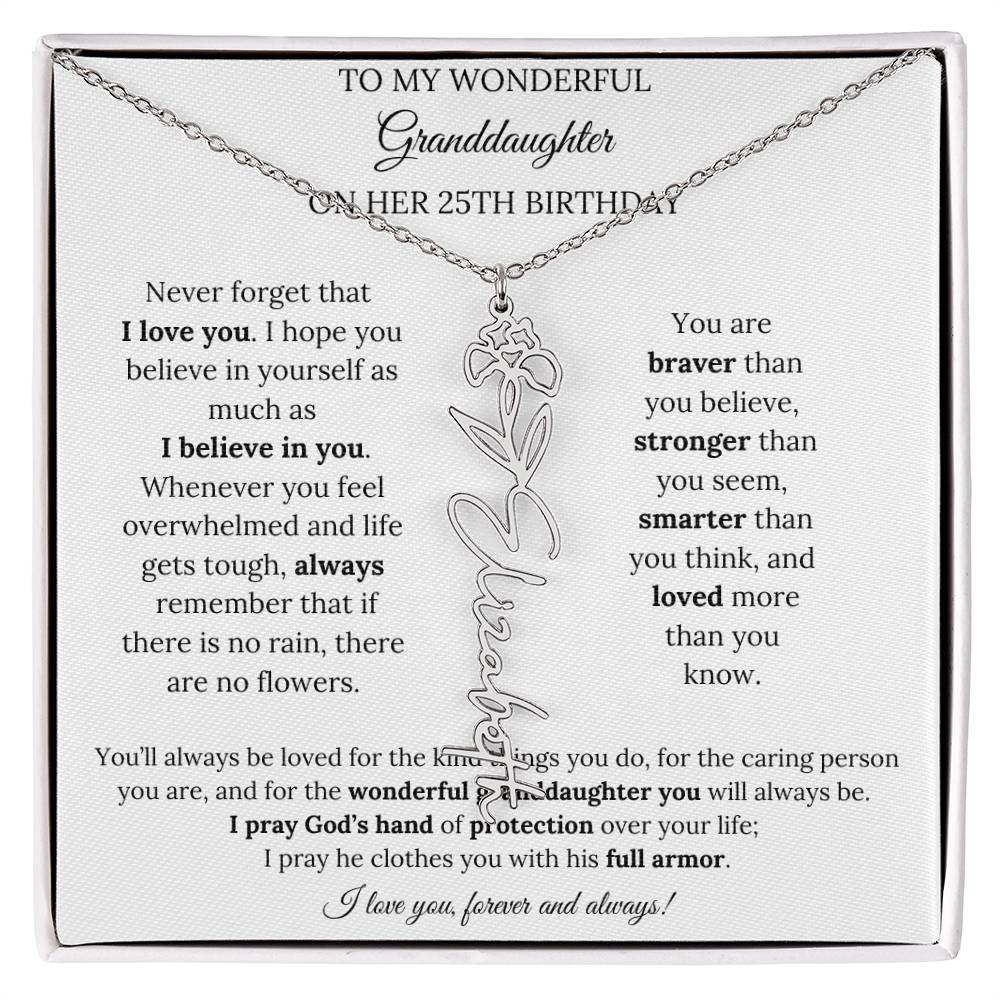 TO MY WONDERFUL
Granddaughter
ON HER 25TH BIRTHDAY
Never forget that
I love you. I hope you
believe in yourself as
much as
I believe in you.
Whenever you feel
overwhelmed and life
gets tough, always
remember that if
there is no rain, there
are no flowers.
You are
braver than
you believe,
stronger than
you seem,
smarter than
you think, and
loved more
than you
know.
Elizabeth
You'll always be loved for the kind things you do, for the caring person
you are, and for the wonderful granddaughter you will always be.
I pray God's hand of protection over your life;
I pray he clothes you with his full armor.
I love you, forever and always!